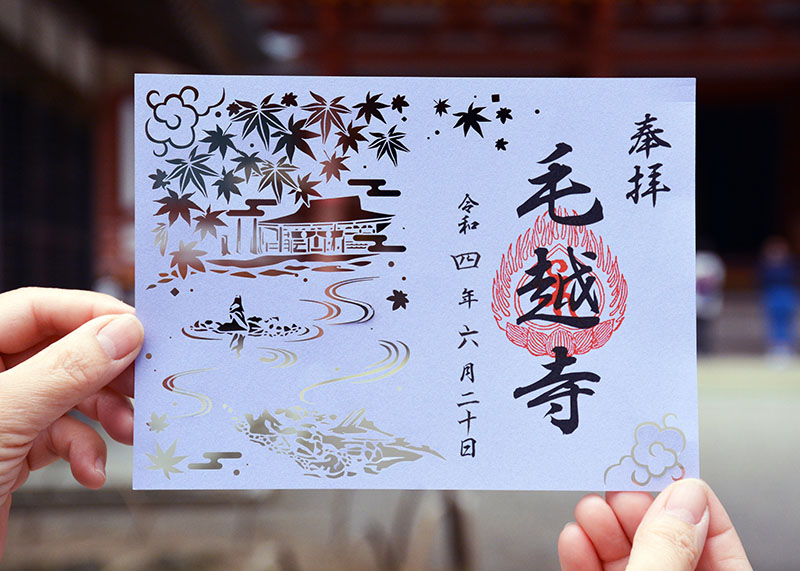 奉拝
毛越寺
令和四年六月二十日